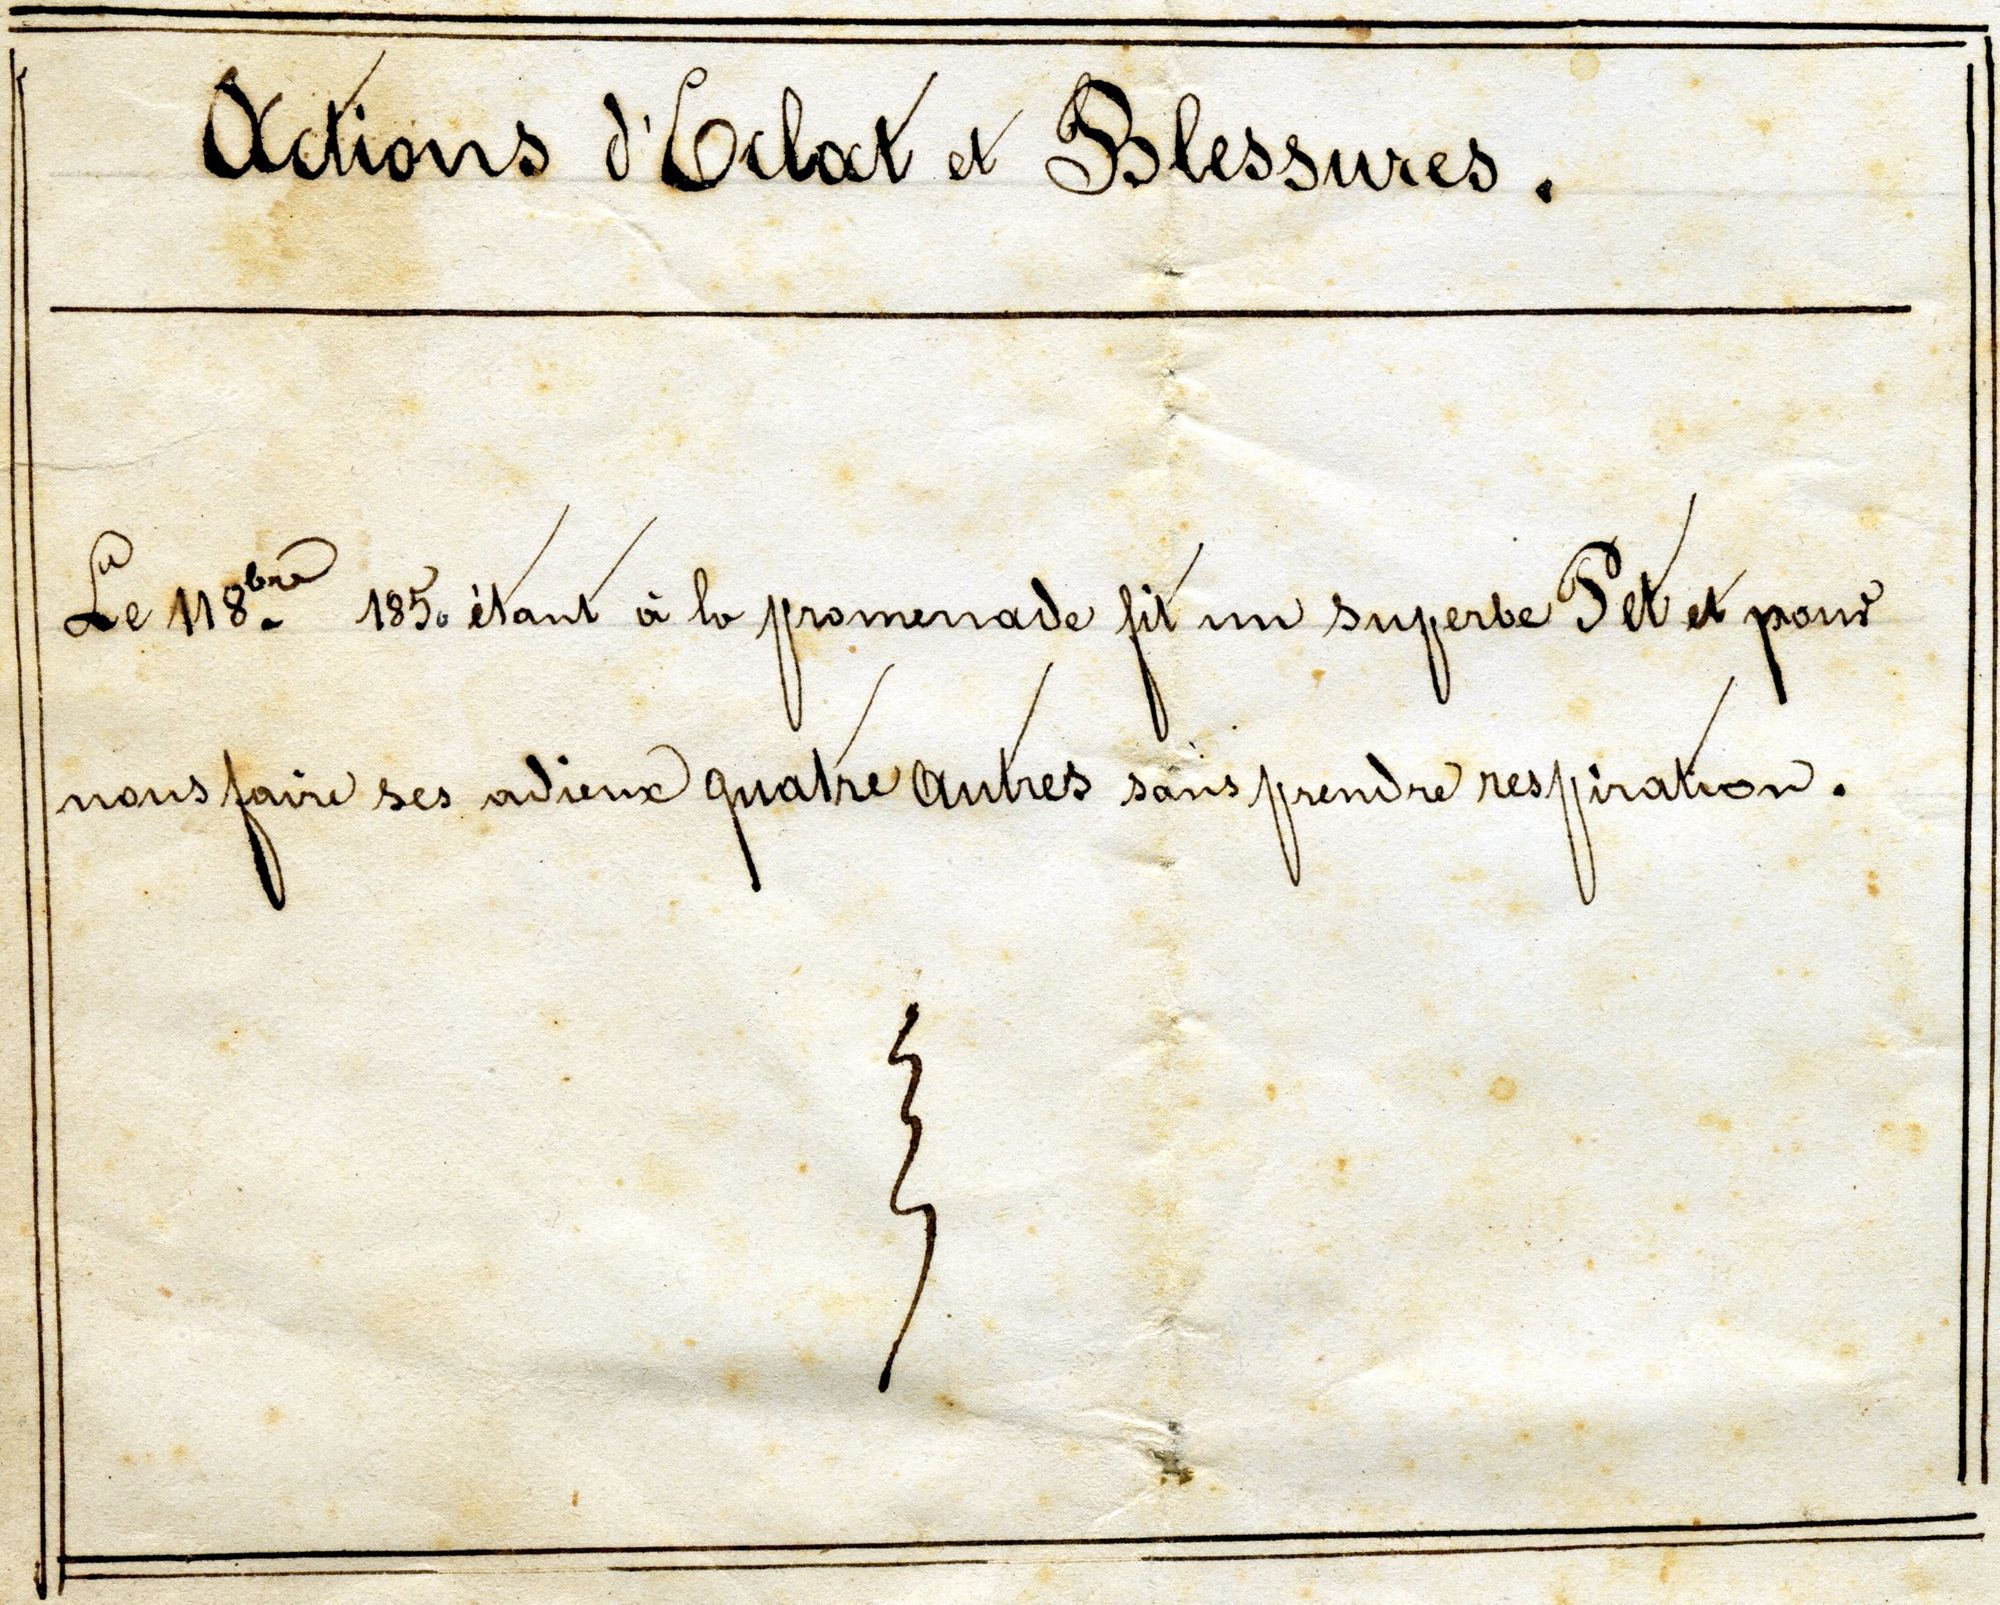 Actions d'Eclat et Blessures.
Le 11 8bre 1850 étant à la promenade fit un superbe Pet et pour
nous faire ses adieux quatre autres sans prendre respiration.